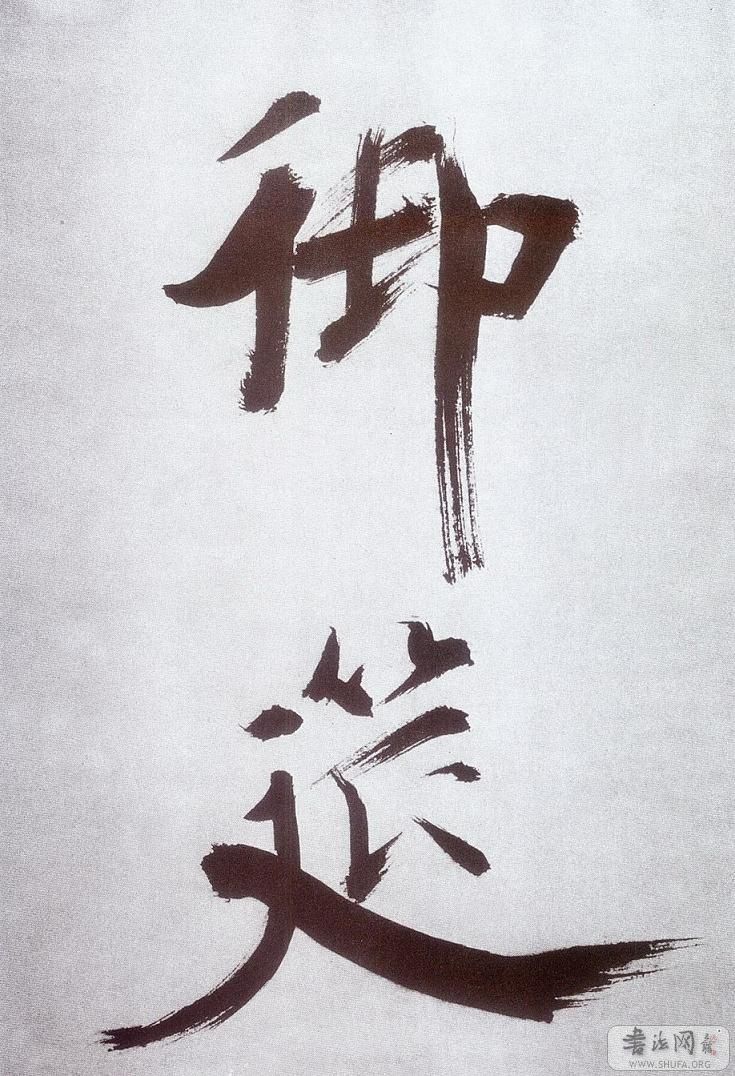 御
筵
書法网
WWW.SHUFA.ORG